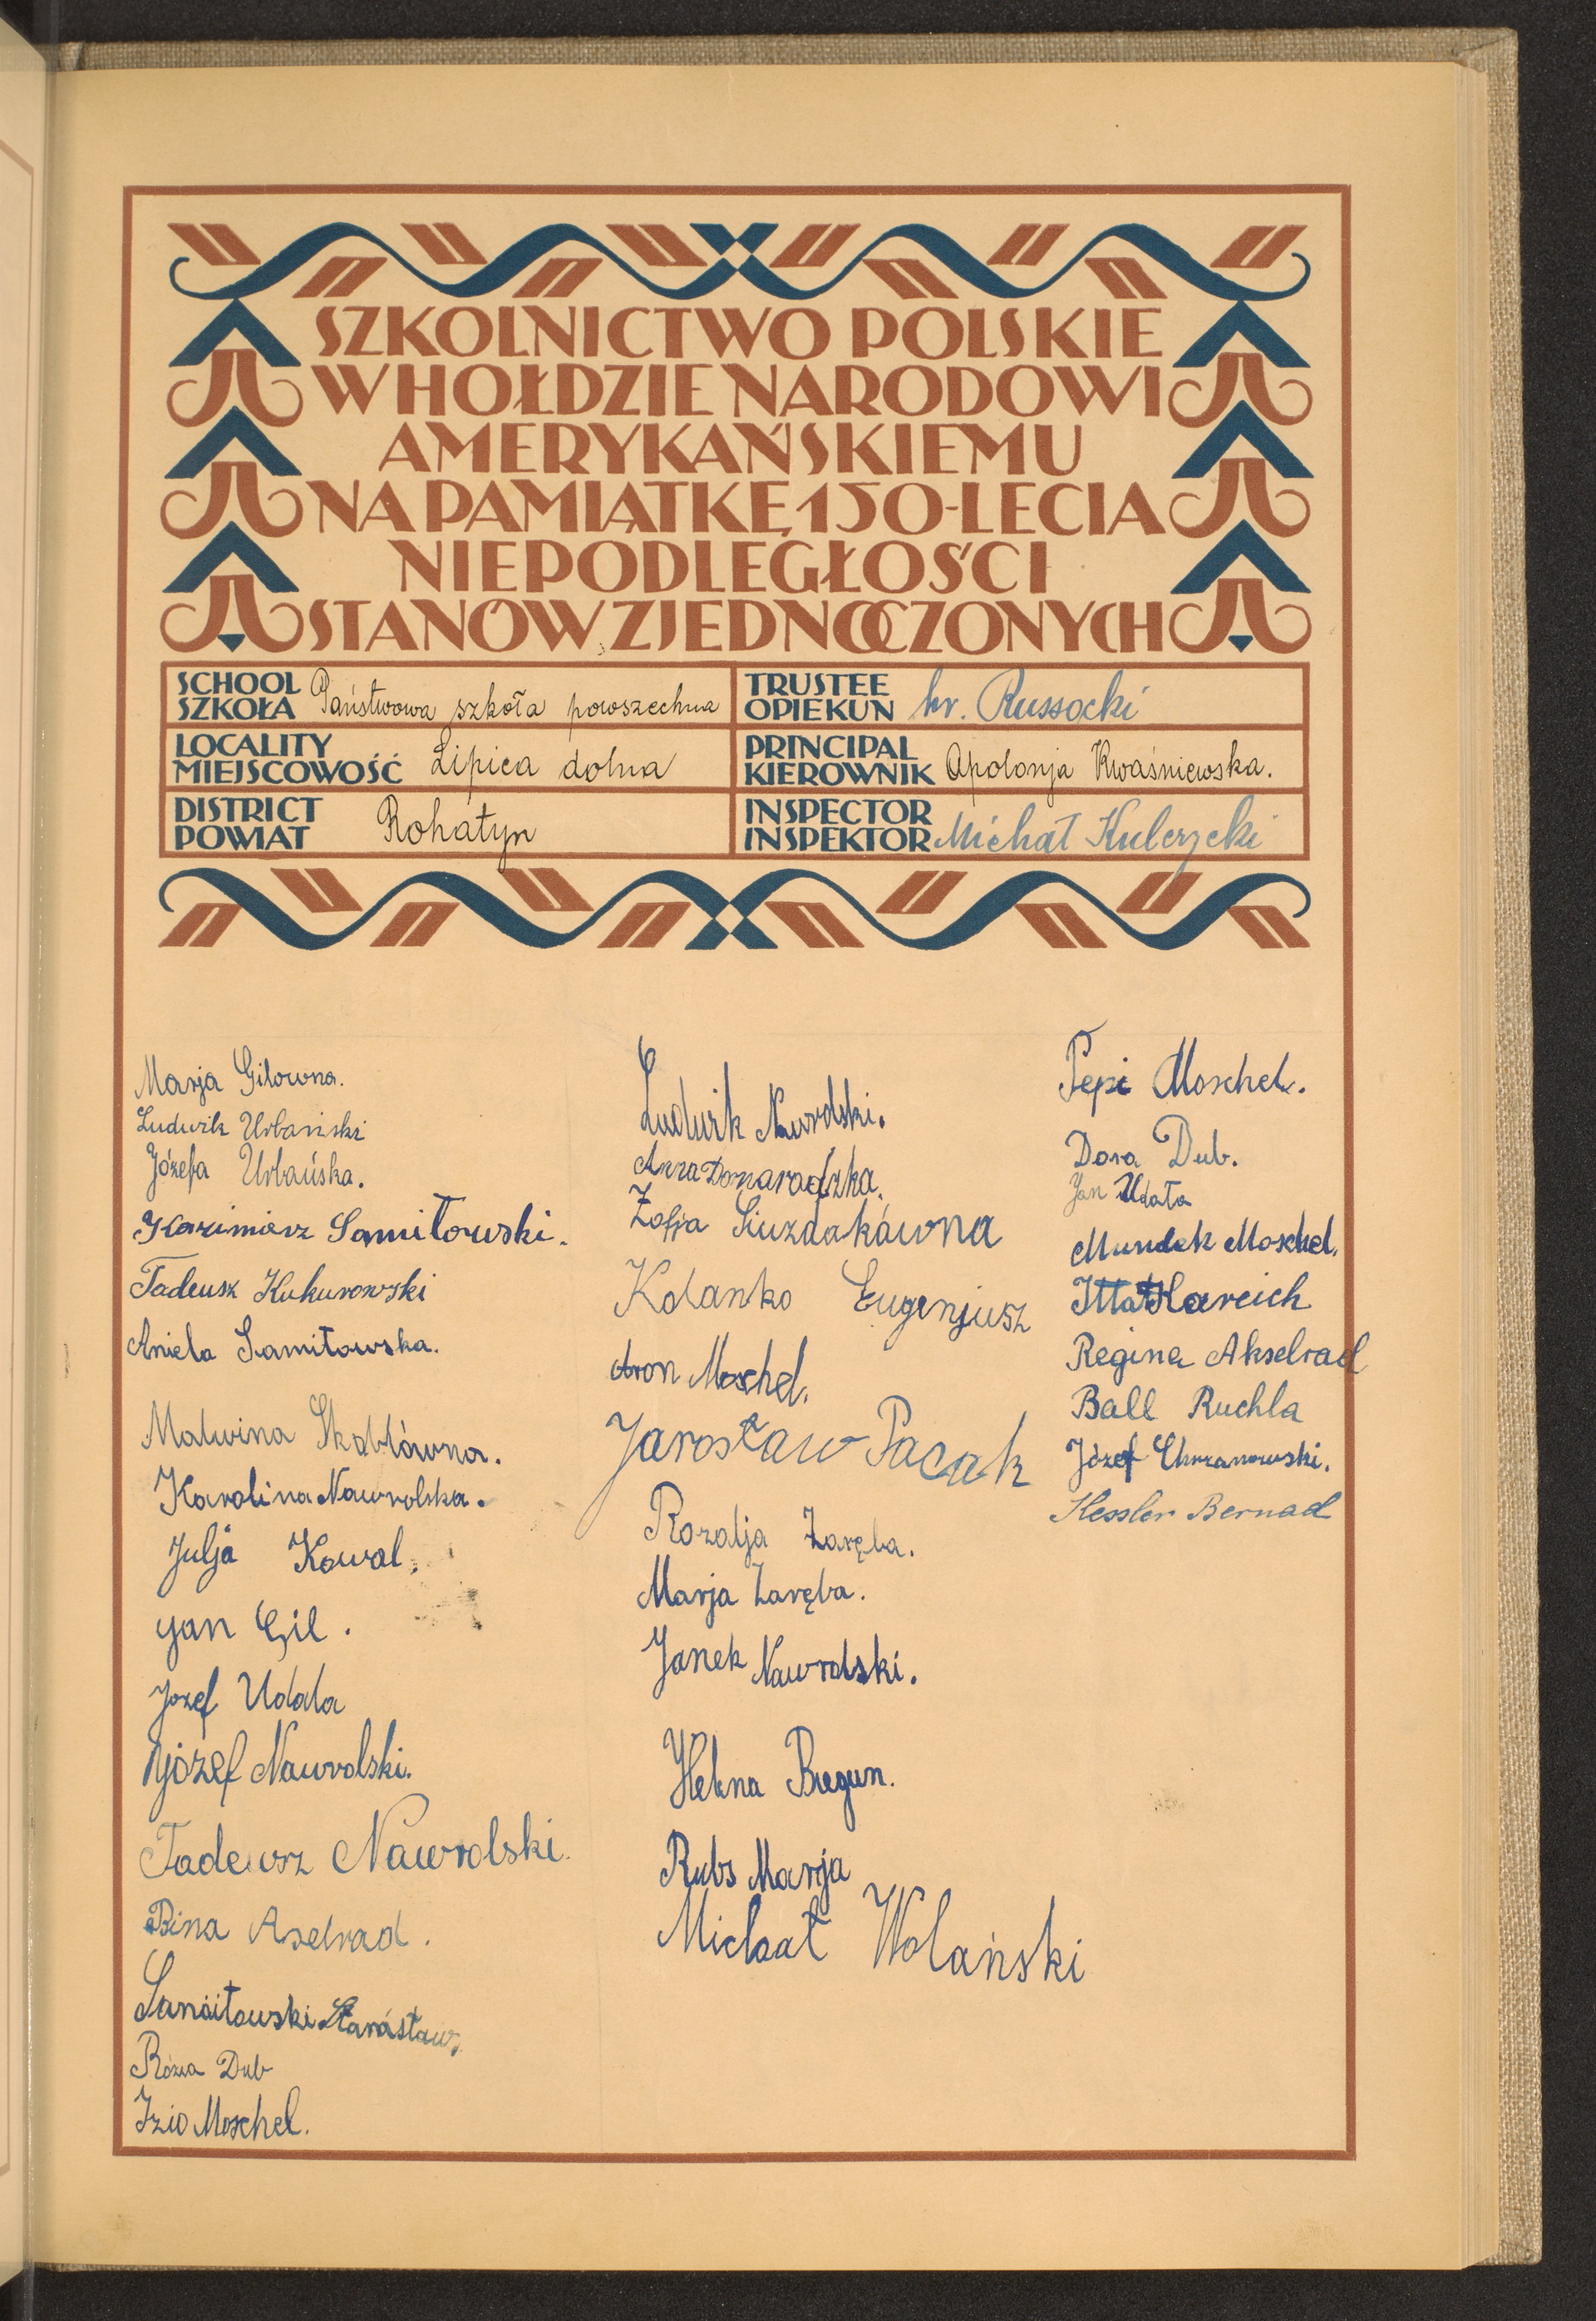 SZKOLNICTWO POLSKIE
W HOŁDZIE NARODOWI
AMERYKAŃSKIEMU
NA PAMIĄTKĘ 150-LECIA
NIEPODLEGŁOŚCI
STANÓW ZJEDNOCZONYCH
SCHOOL
SZKOŁA Państwowa szkoła powszechna
TRUSTEE
OPIEKUN hr. Russocki
LOCALITY
MIEJSCOWOŚĆ Lipica dolna
PRINCIPAL
KIEROWNIK Apolonja Kwaśniewska.
DISTRICT
POWIAT Rohatyn
INSPECTOR
INSPEKTOR Michał Kulczycki
Marja Gilowna.
Ludwik Urbański
Józefa Urbańska.
Kazimierz Samiłowski.
Tadeusz Kukurowski
Aniela Samiłowska.
Malwina Skabłówna.
Karolina Nawrolska.
Julja Kowal.
Jan Gil.
Jozef Udala
Józef Nawrolski.
Tadeusz Nawrolski.
Bina Aselrad.
Samiłowski
Róza Dub
Izio Moschel.
Ludwik Nawrolski.
Anna Domaradzka.
Zofja Siuzdakówna
Kolanko Eugenjusz
Aron Moschel.
Jarosław Pacak
Rozalja Zaręba.
Marja Zaręba.
Janek Nawrolski.
Helena Biegun.
Rubs Marja
Michał Wolański
Pepi Moschel.
Dora Dub.
Jan Udała
Mundek Moschel.
Itta Hareich
Regina Akselrad
Ball Ruchla
Józef Chrzanowski.
Kessler Bernad